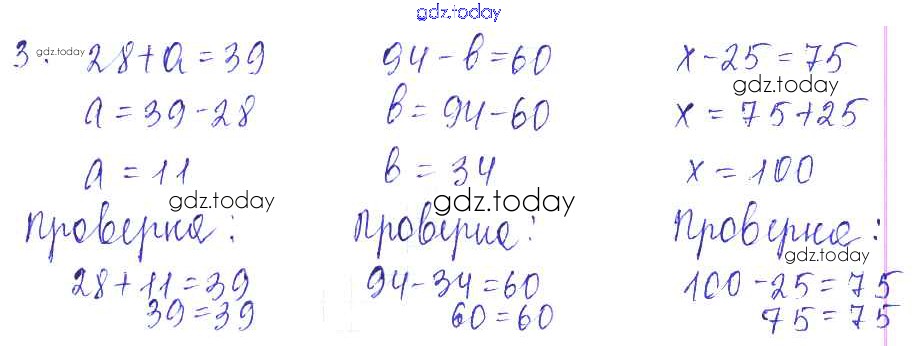 gdz.today
3. gdz.today 28+a=39
a=39-28
a=11
gdz.today
Проверка:
28+11=39
39=39
94-в=60
в=94-60
в=34
gdz.today
Проверка:
94-34=60
60=60
x-25=75
gdz.today
x=75+25
x=100
Проверка:
gdz.today
100-25=75
75=75